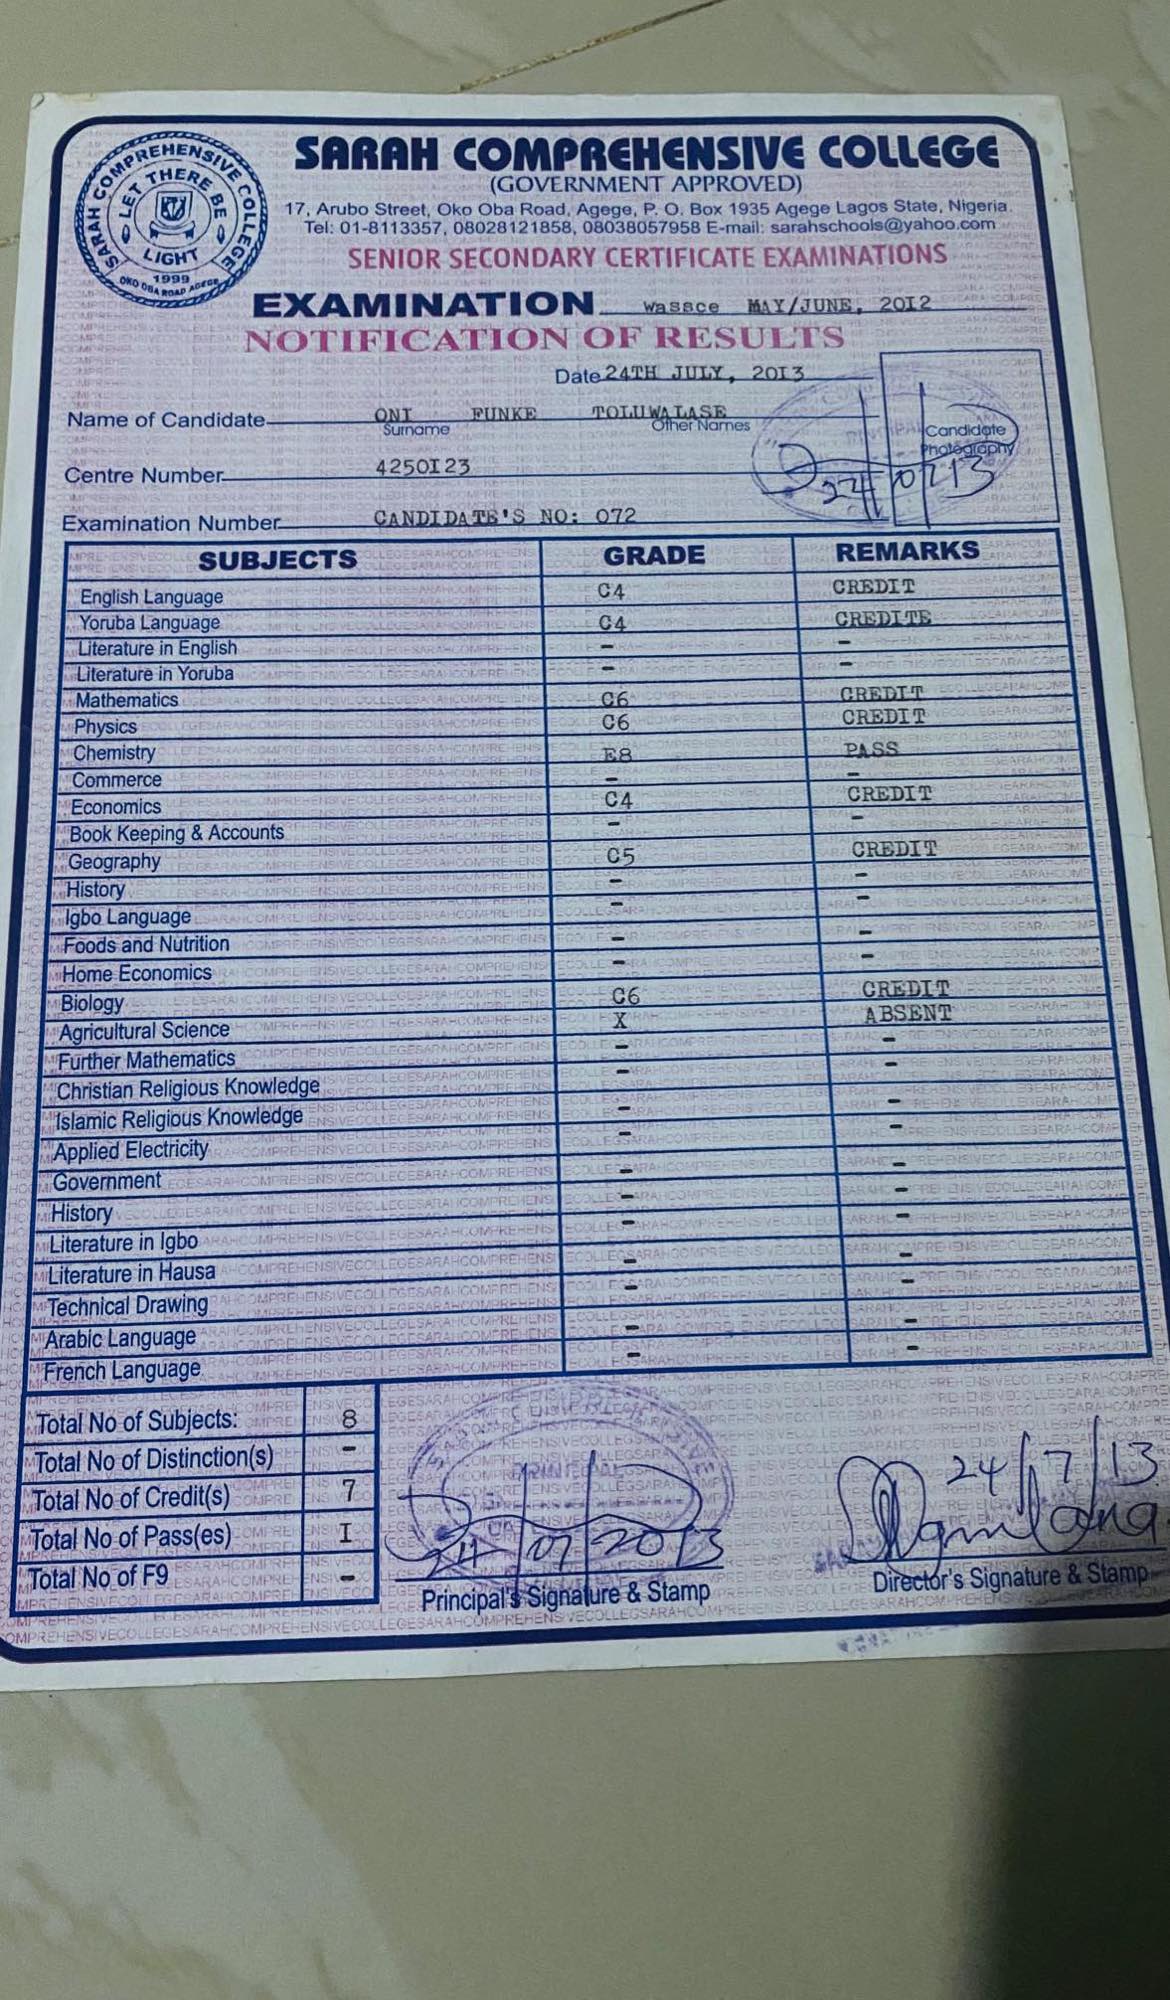 SARAH COMPREHENSIVE COLLEGE
LET THERE BE
LIGHT
1999
OKO OBA ROAD AGEGE
SARAH COMPREHENSIVE COLLEGE
(GOVERNMENT APPROVED)
17, Arubo Street, Oko Oba Road, Agege, P. O. Box 1935 Agege Lagos State, Nigeria.
Tel: 01-8113357, 08028121858, 08038057958 E-mail: sarahschools@yahoo.com
SENIOR SECONDARY CERTIFICATE EXAMINATIONS
EXAMINATION wassce MAY/JUNE, 20I2
NOTIFICATION OF RESULTS
Date 24TH JULY, 20I3
Name of Candidate ONI FUNKE TOLUWALASE
Surname Other Names
Candidate
Photography
Centre Number 4250I23
24/07/13
Examination Number CANDIDATE'S NO: 072
SUBJECTS GRADE REMARKS
English Language C4 CREDIT
Yoruba Language C4 CREDITE
Literature in English - -
Literature in Yoruba - -
Mathematics C6 CREDIT
Physics C6 CREDIT
Chemistry E8 PASS
Commerce - -
Economics C4 CREDIT
Book Keeping & Accounts - -
Geography C5 CREDIT
History - -
Igbo Language - -
Foods and Nutrition - -
Home Economics - -
Biology C6 CREDIT
Agricultural Science X ABSENT
Further Mathematics - -
Christian Religious Knowledge - -
Islamic Religious Knowledge - -
Applied Electricity - -
Government - -
History - -
Literature in Igbo - -
Literature in Hausa - -
Technical Drawing - -
Arabic Language - -
French Language - -
Total No of Subjects: 8
Total No of Distinction(s) -
Total No of Credit(s) 7
Total No of Pass(es) I
Total No of F9 -
PRINCIPAL
24/07/2013
Principal's Signature & Stamp
24/7/13
Director's Signature & Stamp